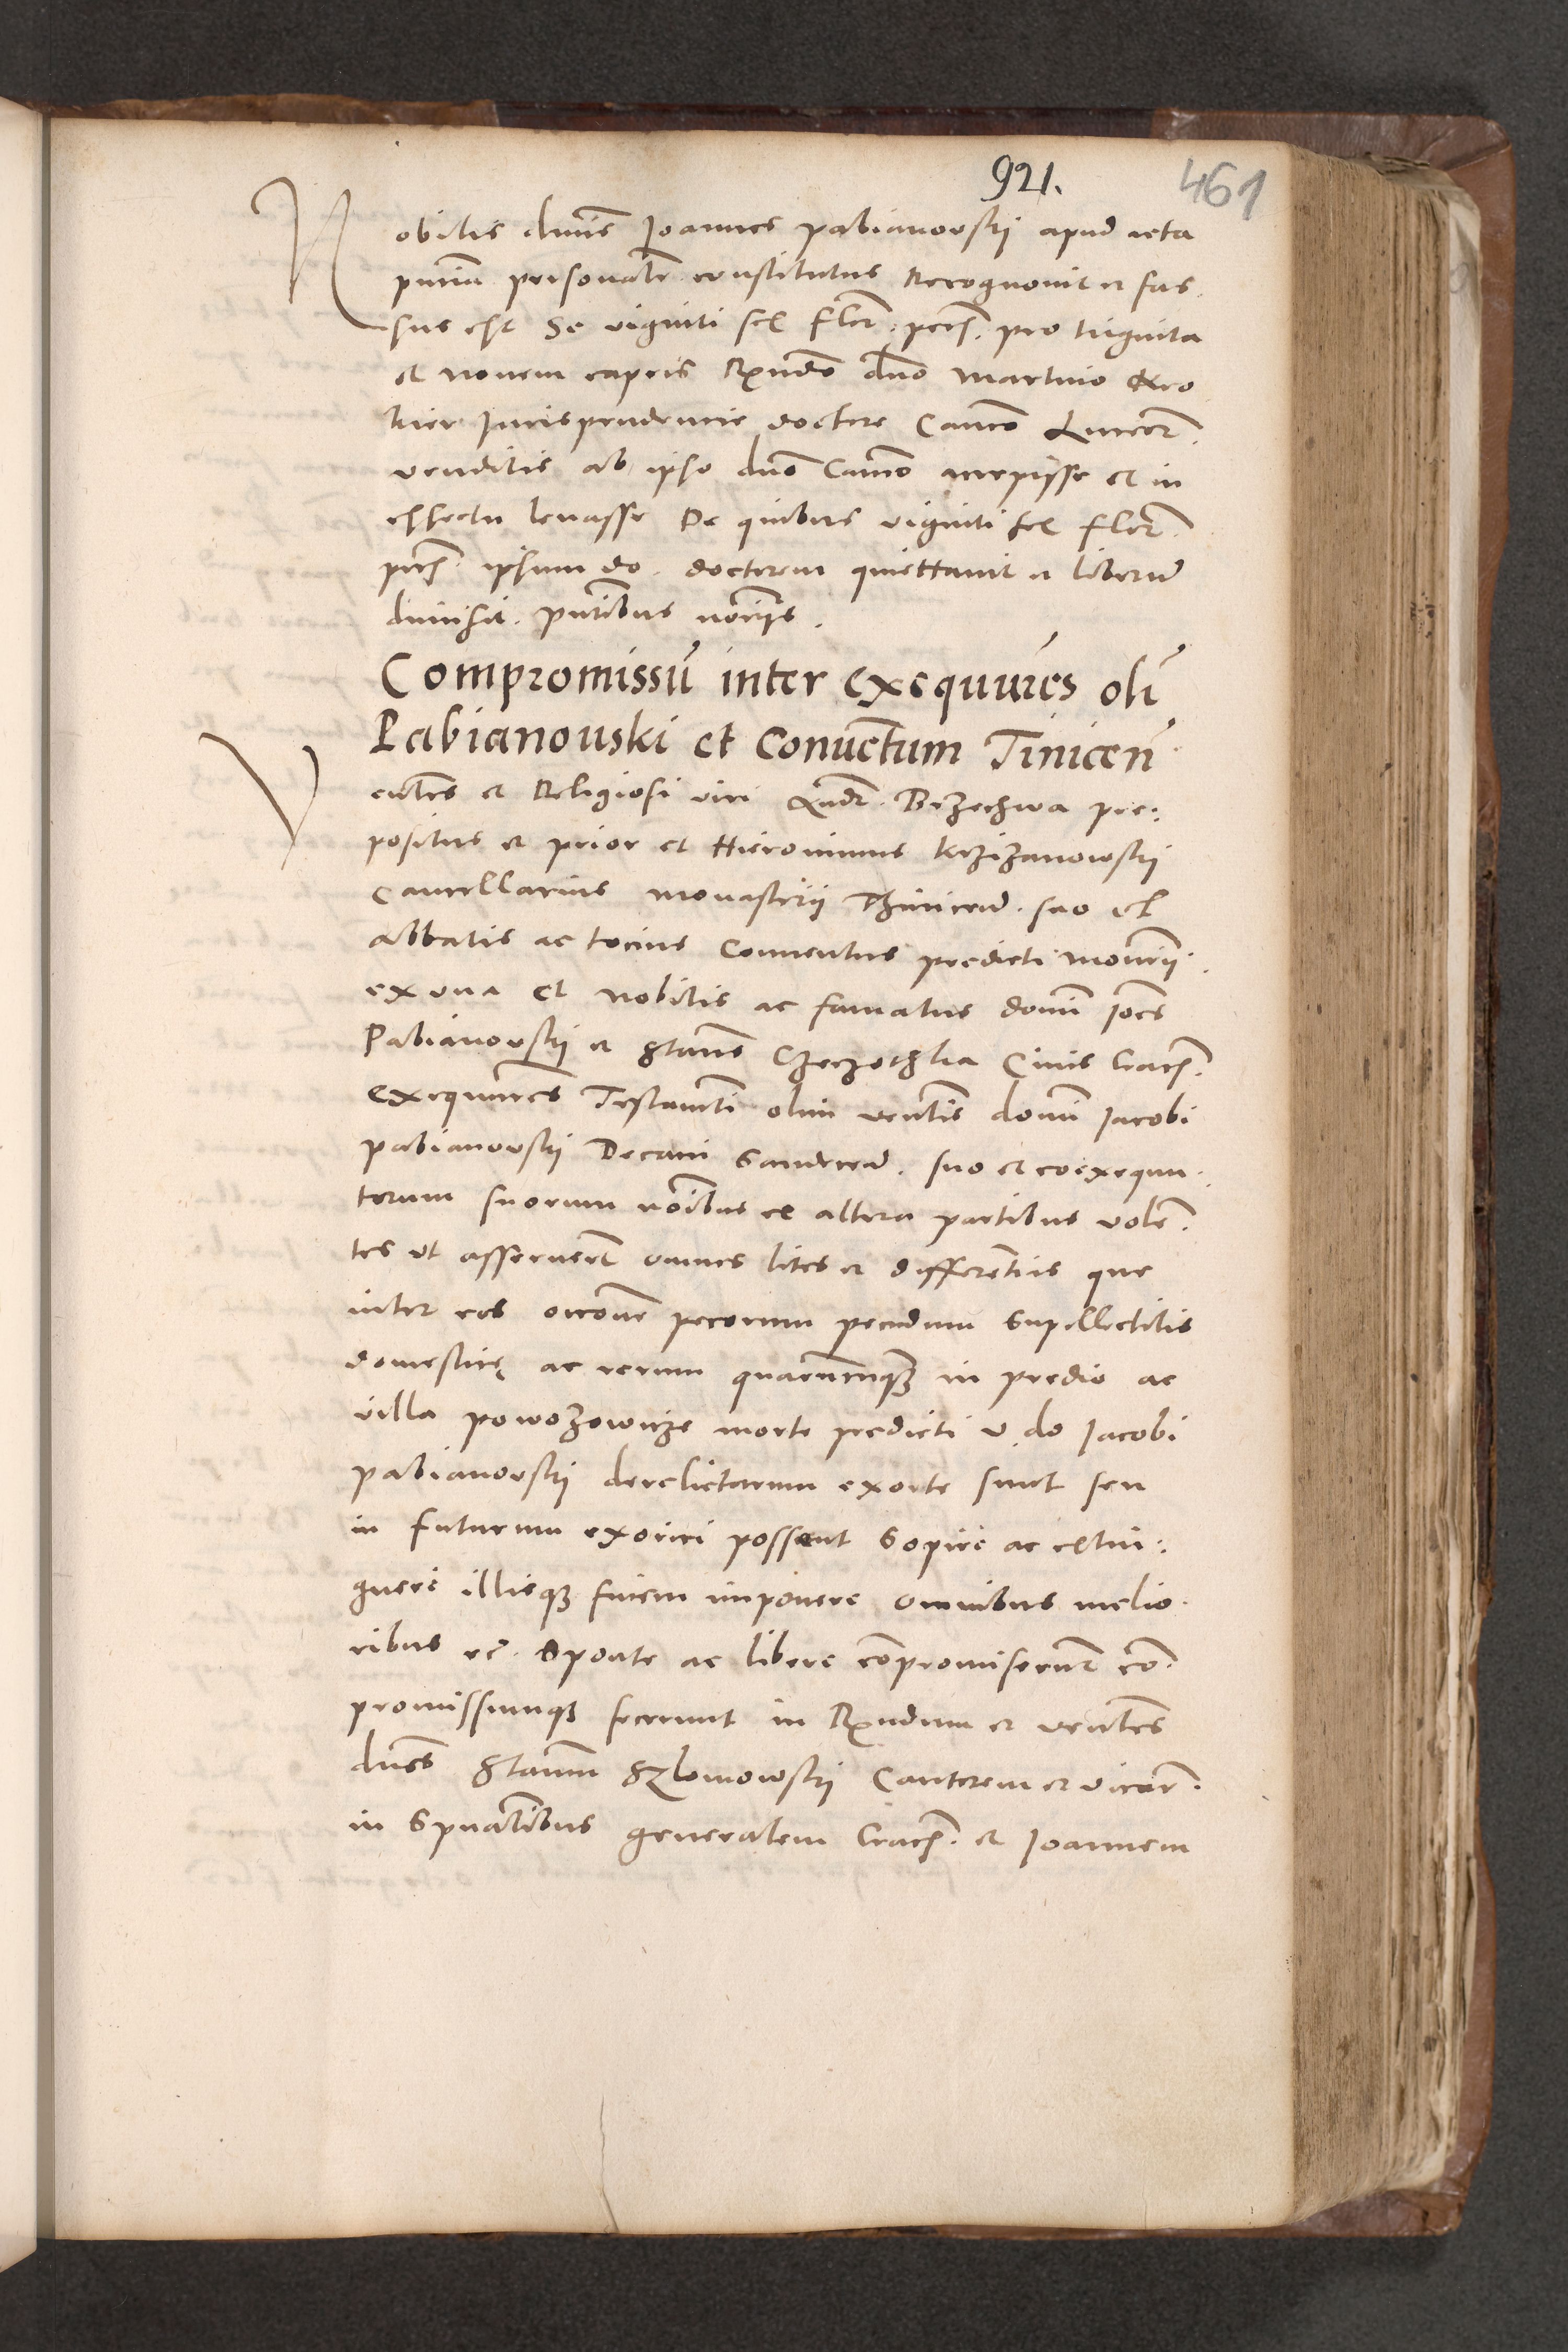 921.
461
Nobilis dnus Joannes Pabianowskij apud acta
pntia personalr constitutus Recognovit et fas
sus est Se viginti sex flor. pecs. pro triginta
et novem capris Rndo dno Martino Kro
kier Jurisprudencie doctore Canco Luceor.
venditis ab ipso dno Canco accepisse et in
effectu levasse De quibus viginti sex flor.
pecs. ipsum do. doctorem quiettavit et liberū
dimisit. pntibus notriis.
Compromissū inter exequutres oli
Pabianouski et Conuetum Tinicen
Venles et Religiosi viri Andr. Brzechwa pre-
positus et prior et Hieronimus Krzizanowskij
Cancellarius monasterii Thinicen. suo et
abbatis ac tocius Conventus predicti monrii.
ex una et Nobilis ac famatus domi Joes
Pabianowskij et Stans Czeczothka Civis Crac.
exequutres Testamti olim venlis domi Jacobi
Pabianowskij Decani Sandecen. suo et coexequu-
torum suorum noibus ex altera partibus volen-
tes ut asseruerūt omnes lites et differentias que
inter eos occone pecorum pecudum Supellectilis
domesticę ac rerum quarumcunq in predio ac
villa Powozowicze morte predicti v. do Jacobi
Pabianowskij derelictarum exorte sunt seu
in futurum exoriri possent Sopire ac extin-
guere illisq finem imponere omnibus melio-
ribus etc. Sponte ac libere compromiserunt com-
promissumq fecerunt in Rndum et venles
dnos Stanm Szlomowskij Cantorem et vicar.
in Spualibus generalem Crac. et Joannem